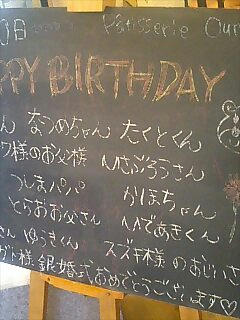 Pâtisserie Our
PPY BIRTHDAY
ん なつめちゃん たくとくん
ワ様のお父様 いさぶろうさん
つしまパパ かほちゃん
とらおお父さん ひであきくん
さん ゆうきくん スズキ様のおじいさ
ガト様 銀婚式おめでとうございます♡